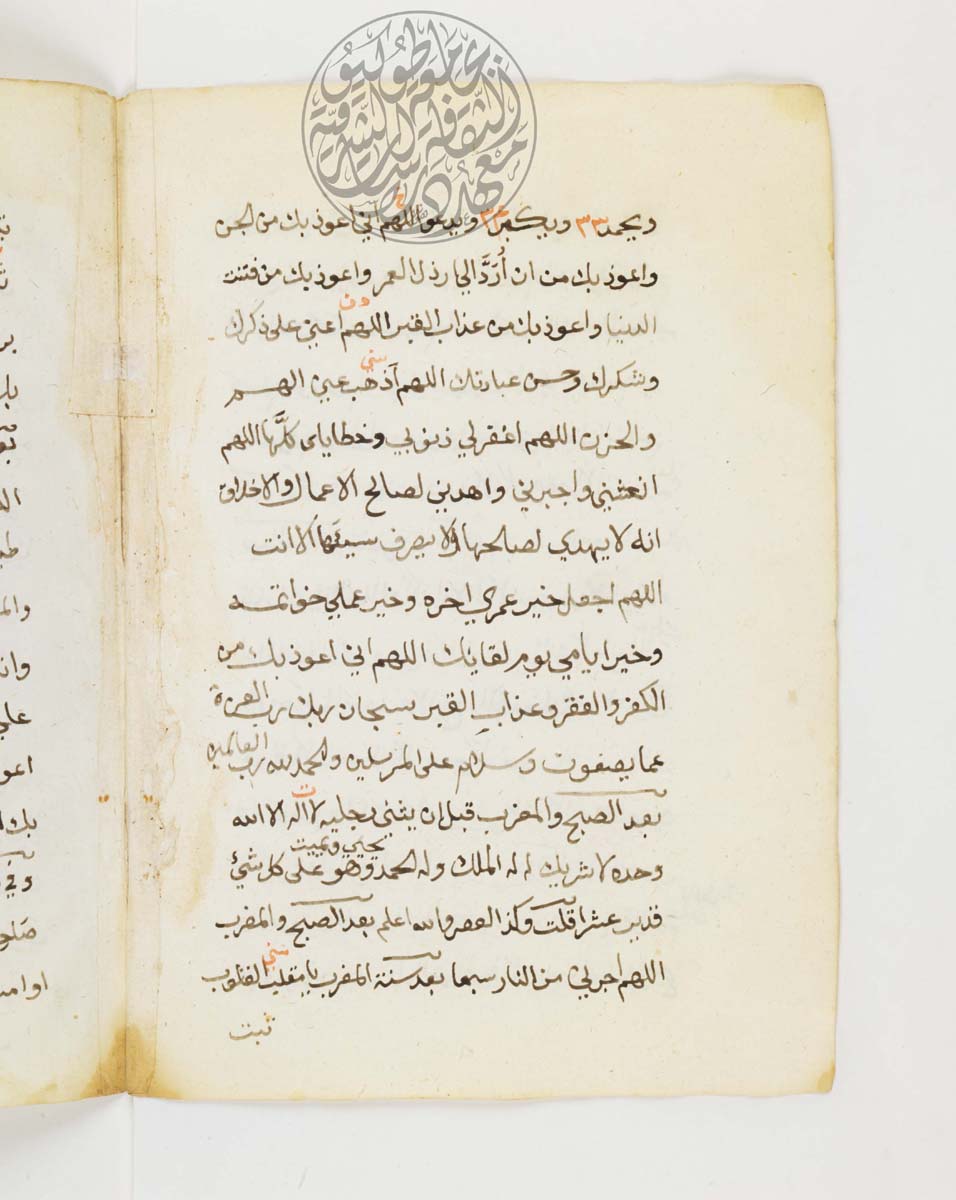 ويحمد ٣٣ ويكبر ٣٤ ويدعو اللهم اني اعوذ بك من الجبن
واعوذ بك من ان أُرَدَّ الي ارذل العمر واعوذ بك من فتنت
الدنيا واعوذ بك من عذاب القبر اللهم اعني على ذكرك
وشكرك وحسن عبادتك اللهم آذهب عني الهم
والحزن اللهم اغفر لي ذنوبي وخطاياى كلَّها اللهم
انعشني واجبرني واهدني لصالح الاعمال والاخلاق
انه لا يهدي لصالحها ولا يصرف سيئَها الا انت
اللهم اجعل خير عمري اخره وخير عملي خواتمه
وخير ايامي يوم لقائك اللهم اني اعوذ بك من
الكفر والفقر وعذاب القبر سبحان ربك رب العزة
عما يصفون وسلام على المرسلين والحمد لله رب العالمين
بعد الصبح والمغرب قبل ان يثني رجليه لا اله الا الله
وحده لا شريك له له الملك وله الحمد يحيي ويميت وهو على كل شيئ
قدير عشرا قلت وكذا العصر والله اعلم بعد الصبح والمغرب
اللهم اجرني من النار سبعا بعد سنة المغرب يا مقلب القلوب
ثبت